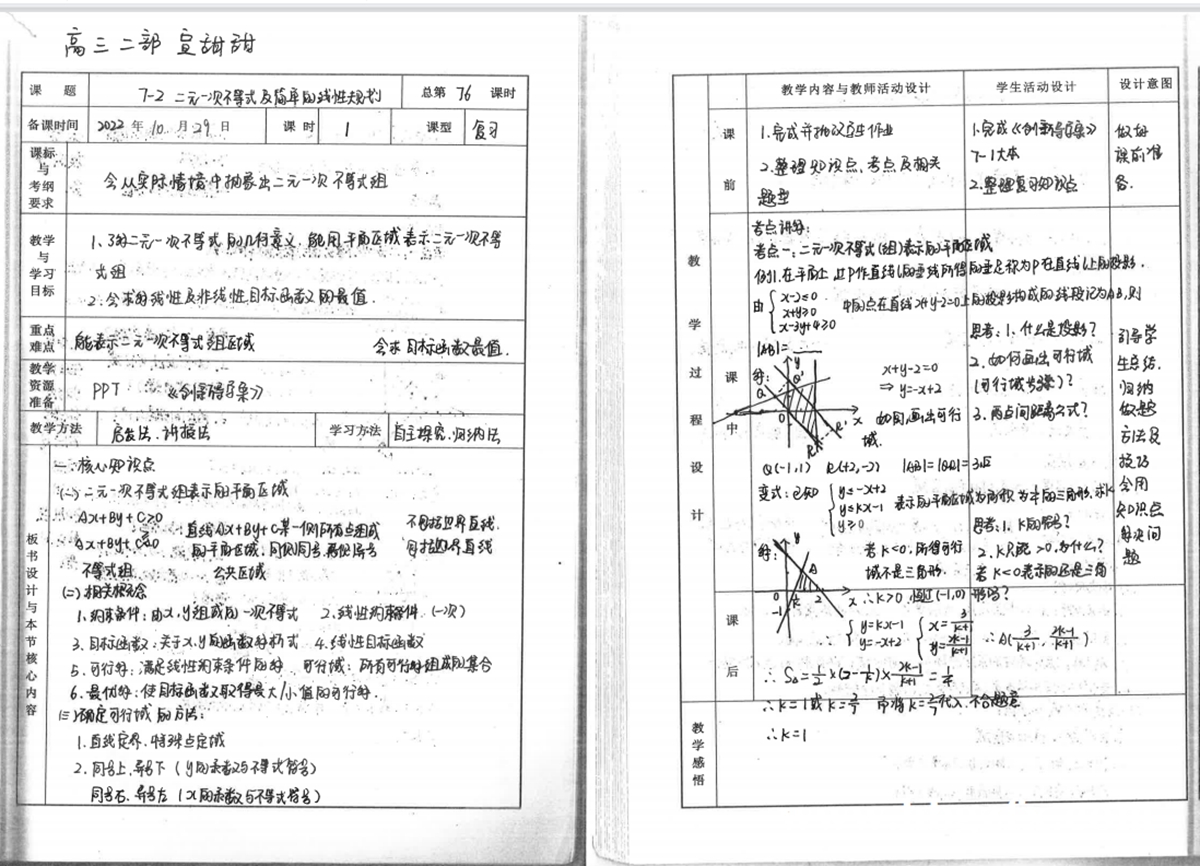 高三二部 宣甜甜
课 题 7-2 二元一次不等式及简单的线性规划 总第 76 课时
备课时间 2022 年 10 月 29 日 课 时 1 课型 复习
课标与考纲要求 会从实际情境中抽象出二元一次不等式组
教学与学习目标 1、了解二元一次不等式的几何意义,能用平面区域表示二元一次不等
式组
2. 会求的线性及非线性目标函数的最值.
重点难点 能表示二元一次不等式组区域 会求目标函数最值.
教学资源准备 PPT 《创新导学案》
教学方法 启发法.讲授法 学习方法 自主探究.归纳法
板书设计与本节核心内容
一.核心知识点
(一) 二元一次不等式组表示的平面区域
Ax+By+C>0 直线Ax+By+C某一侧所有点组成 不包括边界直线
Ax+By+C≥0 的平面区域,同侧同号,异侧异号 包括边界直线
不等式组 公共区域
(二) 相关概念
1.约束条件:由x,y组成的一次不等式 2.线性约束条件 (一次)
3.目标函数:关于x,y的函数解析式 4.线性目标函数
5.可行解:满足线性约束条件的解 可行域:所有可行解组成的集合
6.最优解:使目标函数取得最大/小值的可行解.
(三)确定可行域的方法:
1.直线定界.特殊点定域
2.同号上,异号下 (y的系数与不等式符号)
同号右.异号左 (x的系数与不等式符号)
教学内容与教师活动设计 学生活动设计 设计意图
教学过程设计
课前
1.完成并批改学生作业
2.整理知识点、考点及相关
题型
1.完成《创新导学案》
7-1大本
2.整理复习知识点
做好
课前准
备.
课中
考点讲解:
考点一:二元一次不等式(组)表示的平面区域
例1.在平面上,过P作直线l的垂线所得的垂足称为P在直线l上的投影.
由 { x-2≤0 中的点在直线x+y-2=0上的投影构成的线段记为AB,则
x+y≥0
x-3y+4≥0
|AB|=____
解: y Q Q' 0 x R R'
x+y-2=0
⇒ y=-x+2
如图,画出可行
域.
思考:1.什么是投影?
2.如何画出可行域
(可行域步骤)?
3.两点间距离公式?
引导学
生总结.
归纳
做题
方法及
技巧
会用
知识点
解决问
题
Q(-1,1) R(2,-2) |AB|=|QR|=3√2
变式:已知 { y≤-x+2 表示的平面区域为面积为¼的三角形,求k
y≤kx-1
y≥0
思考:1.k的符号?
2.k只能>0,为什么?
若k<0表示的还是三角
形吗?
解: y A 0 2 x -1
若k<0,所得可行
域不是三角形.
∴k>0
课后
∴ { y=kx-1 { x=3/(k+1) ∴A(3/(k+1), (2k-1)/(k+1))
y=-x+2 y=(2k-1)/(k+1)
∴S△=½×(2-1/k)×(2k-1)/(k+1)=¼
∴k=1或k=2/7 而将k=2/7代入,不合题意
∴k=1
教学感悟